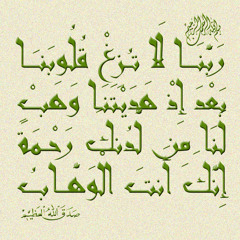 بسم الله الرحمن الرحيم
رَبَّنَا لَا تُزِغْ قُلُوبَنَا
بَعْدَ إِذْ هَدَيْتَنَا وَهَبْ
لَنَا مِن لَّدُنكَ رَحْمَةً
إِنَّكَ أَنتَ الْوَهَّابُ
صدق الله العظيم